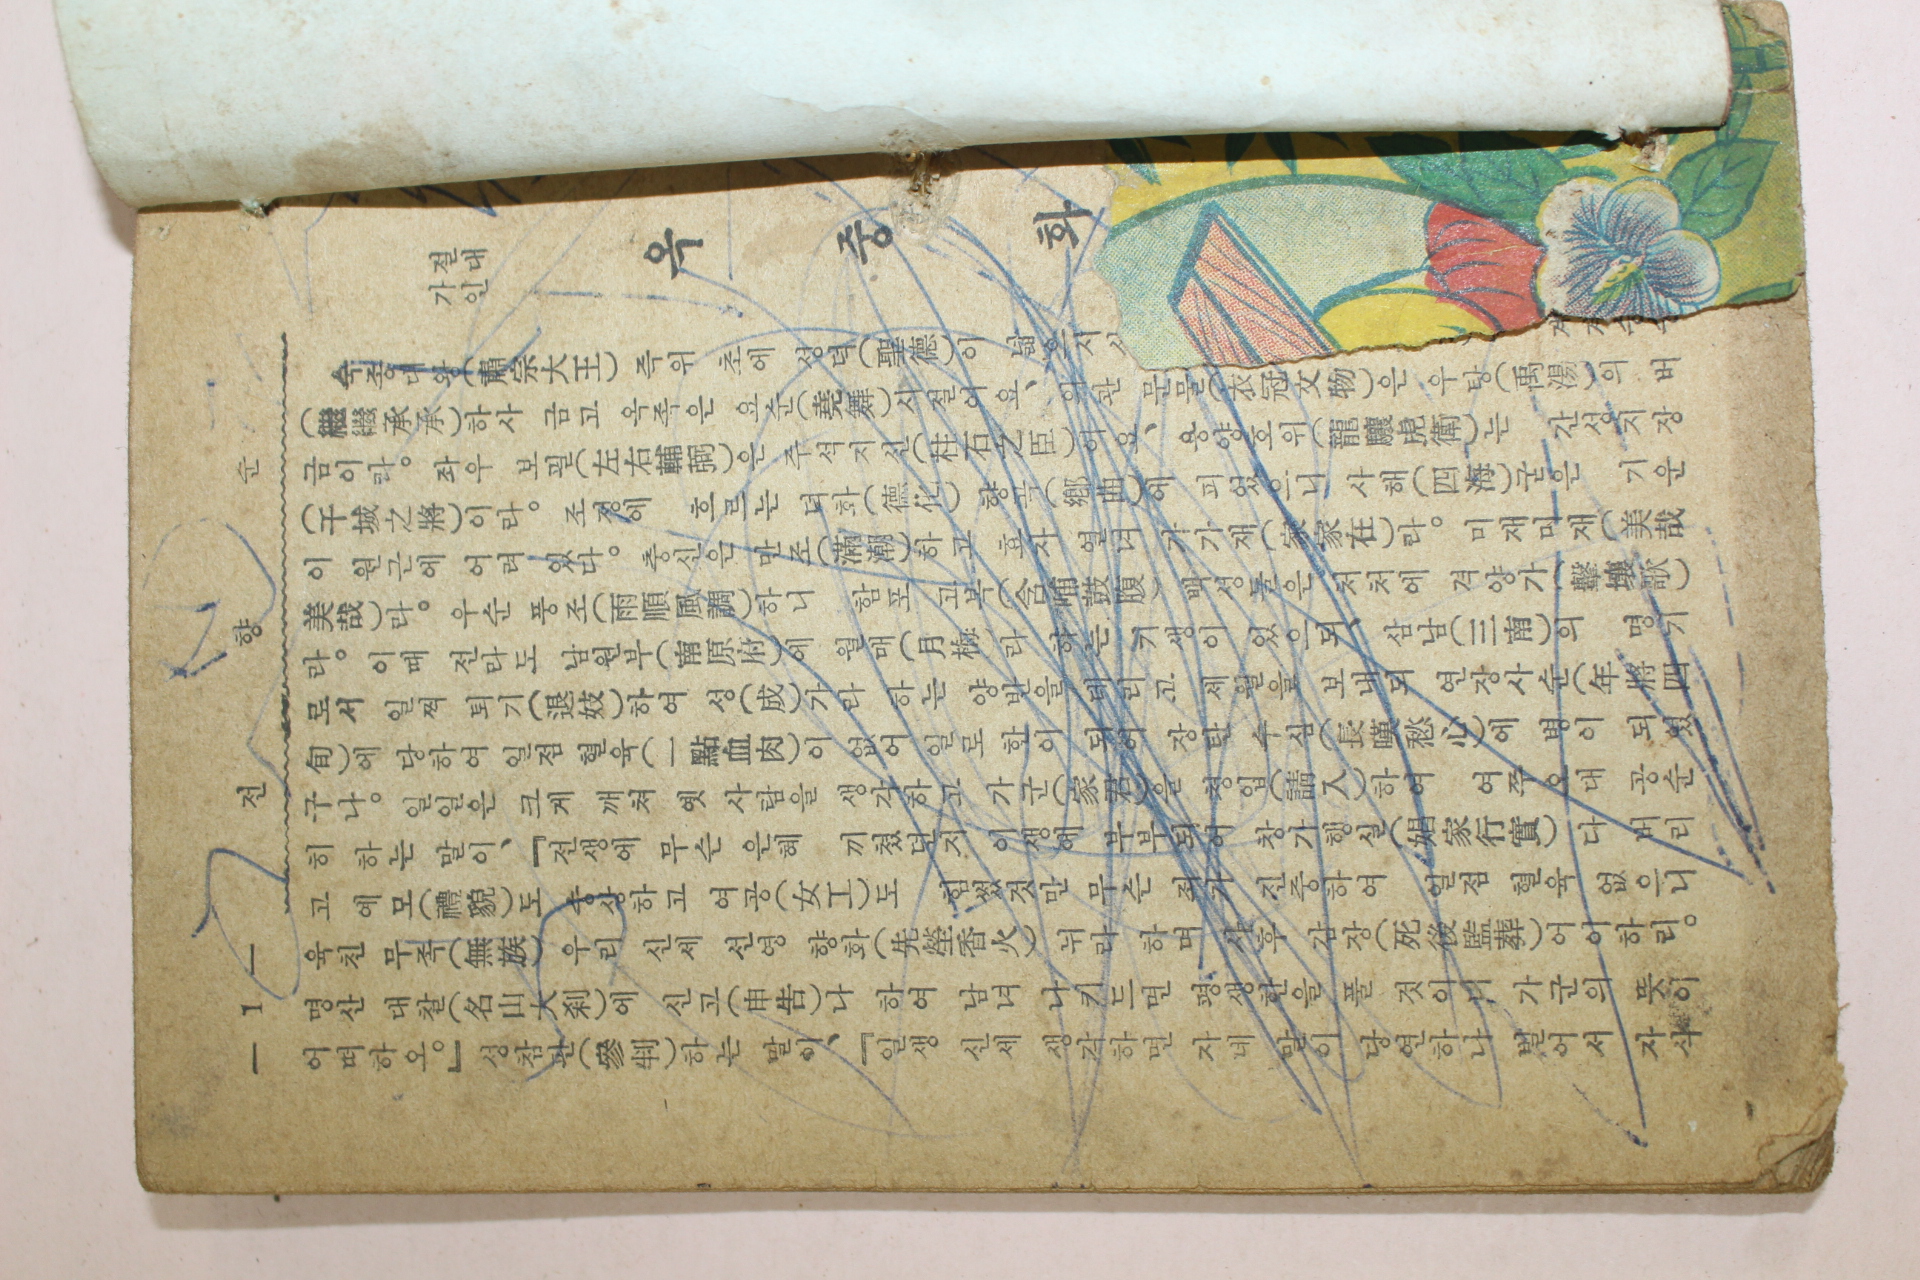 전 향 순
— 1 —
절대
가인
옥 중 화
숙종대왕(肅宗大王) 즉위 초에 성덕(聖德)이 넓으사
(繼繼承承)하사 금고 옥족은 요순(堯舜)시절이요、의관 문물(衣冠文物)은 우탕(禹湯)의 버
금이라。 좌우 보필(左右輔弼)은 주석지신(柱石之臣)이요、용양호위(龍驤虎衛)는 간성지장
(干城之將)이라。 조정에 흐르는 덕화(德化) 향곡(鄕曲)에 피었으니 사해(四海)굳은 기운
이 원근에 어려 있다。 충신은 만조(滿潮)하고 효자 열녀 가가재(家家在)라。 미재미재(美哉
美哉)라。 우순 풍조(雨順風調)하니 함포 고복(含哺鼓腹) 백성들은 처처에 격양가(擊壤歌)
라。 이때 전라도 남원부(南原府)에 월매(月梅)라 하는 기생이 있으되、삼남(三南)의 명기
로서 일찍 퇴기(退妓)하여 성(成)가라 하는 양반을 데리고 세월을 보내되 연장사순(年將四
旬)에 당하여 일점 혈육(一點血肉)이 없어 일로 한이 되어 장탄 수심(長嘆愁心)에 병이 되었
구나。 일일은 크게 깨쳐 옛 사람을 생각하고 가군(家君)을 청입(請入)하여 여쭈오대 공순
히 하는 말이、『전생에 무슨 은혜 끼쳤던지 이생에 부부되어 창가행실(娼家行實) 다 버리
고 예모(禮貌)도 숭상하고 여공(女工)도 힘썼것만 무슨 죄가 진중하여 일점 혈육 없으니
육친 무족(無族) 우리 신세 선영 향화(先塋香火) 뉘라 하며 사후 감장(死後監葬)어이하리。
명산 대찰(名山大刹)에 신고(申告)나 하여 남녀 나키드면 평생한을 풀 것이니 가군의 뜻이
어떠하오。』 성참판(參判)하는 말이、『일생 신세 생각하면 자네 말이 당연하나 빌어서 자식